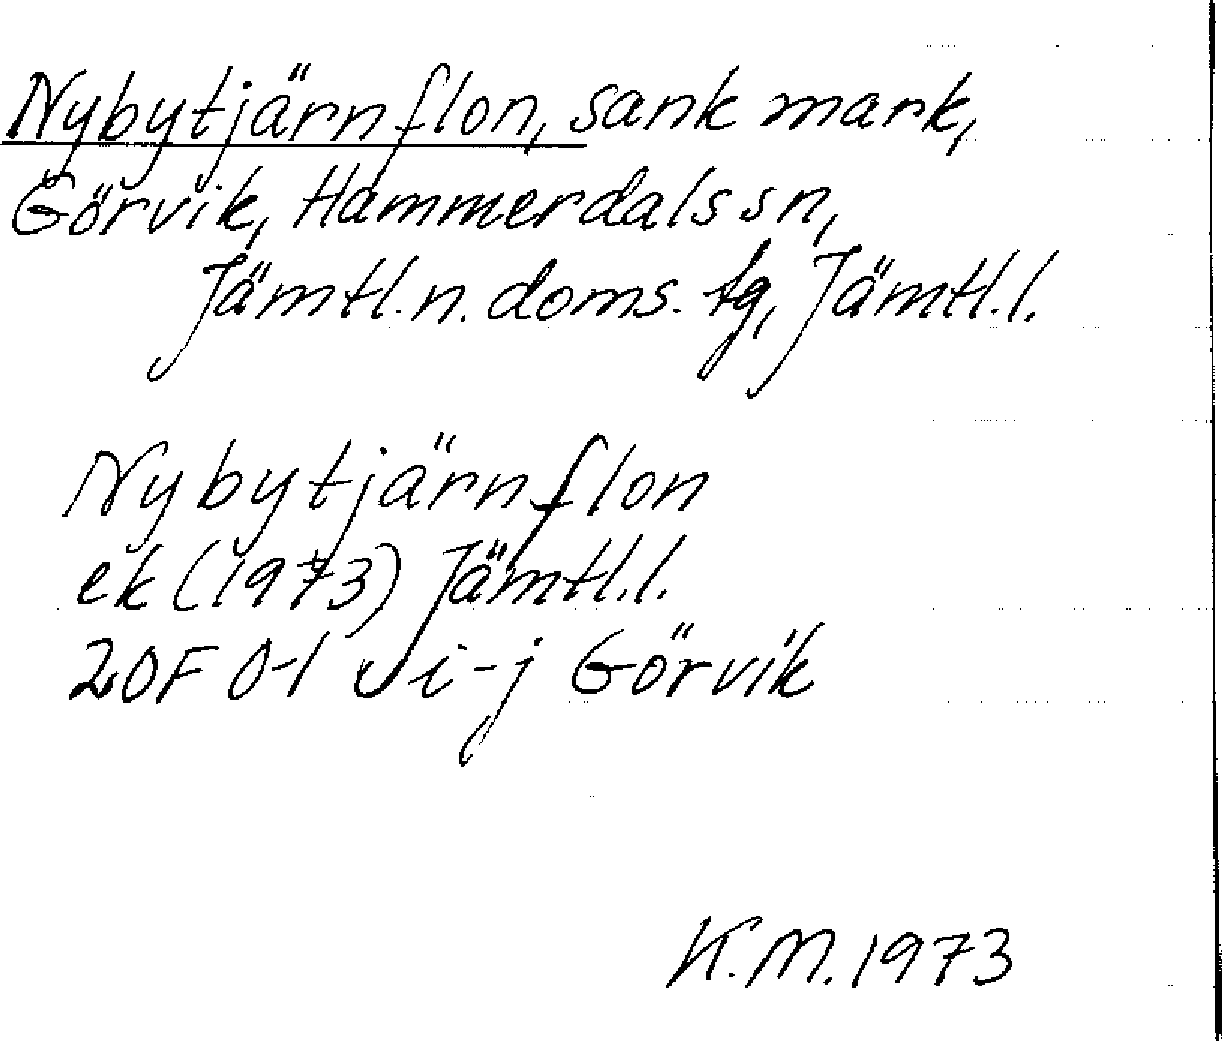 Nybytjärnflon, sank mark,
Görvik, Hammerdals sn,
Jämtl. n. doms. tg, Jämtl. l.
Nybytjärnflon
ek (1973) Jämtl. l.
20F 0-1 i-j Görvik
K. M. 1973